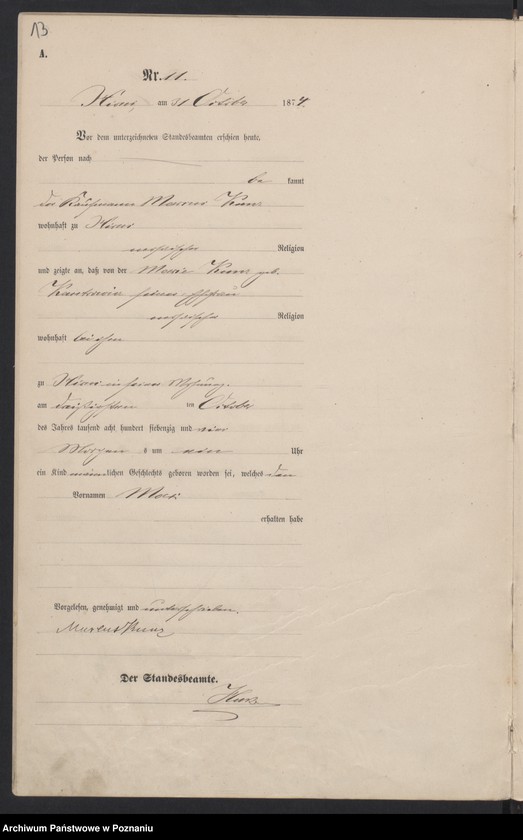 13
A.
Nr. 11.
am 31 October 1874.
Vor dem unterzeichneten Standesbeamten erschien heute,
der Person nach
be kannt
der Kaufmann Marcus Kunz
wohnhaft zu
mosaischer Religion
und zeigte an, daß von der Marie Kunz geb.
seiner Ehefrau
mosaischer Religion
wohnhaft bei ihm
zu in seiner Wohnung
am dreißigsten ten October
des Jahres tausend acht hundert siebenzig und vier
Morgen s um Uhr
ein Kind männlichen Geschlechts geboren worden sei, welches den
Vornamen
erhalten habe
Vorgelesen, genehmigt und unterschrieben.
Marcus Kunz
Der Standesbeamte.
Archiwum Państwowe w Poznaniu